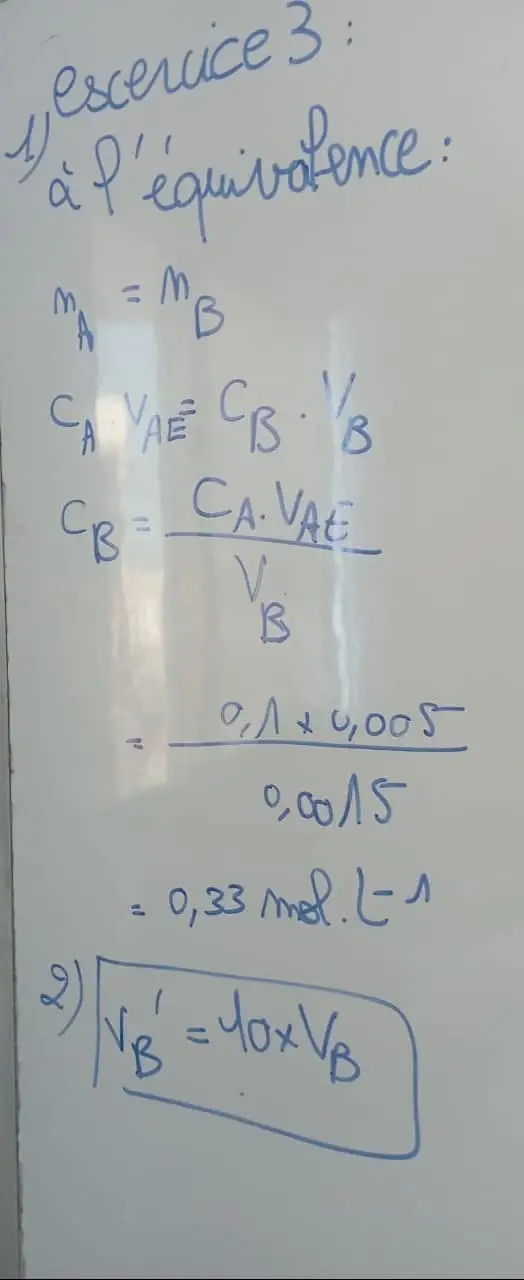 excercice 3 :
1) à l'équivalence :
n_A = n_B
C_A . V_AE = C_B . V_B
C_B = C_A . V_AE / V_B
= 0,1 x 0,005 / 0,0015
= 0,33 mol . L-1
2) V_B' = 10 x V_B